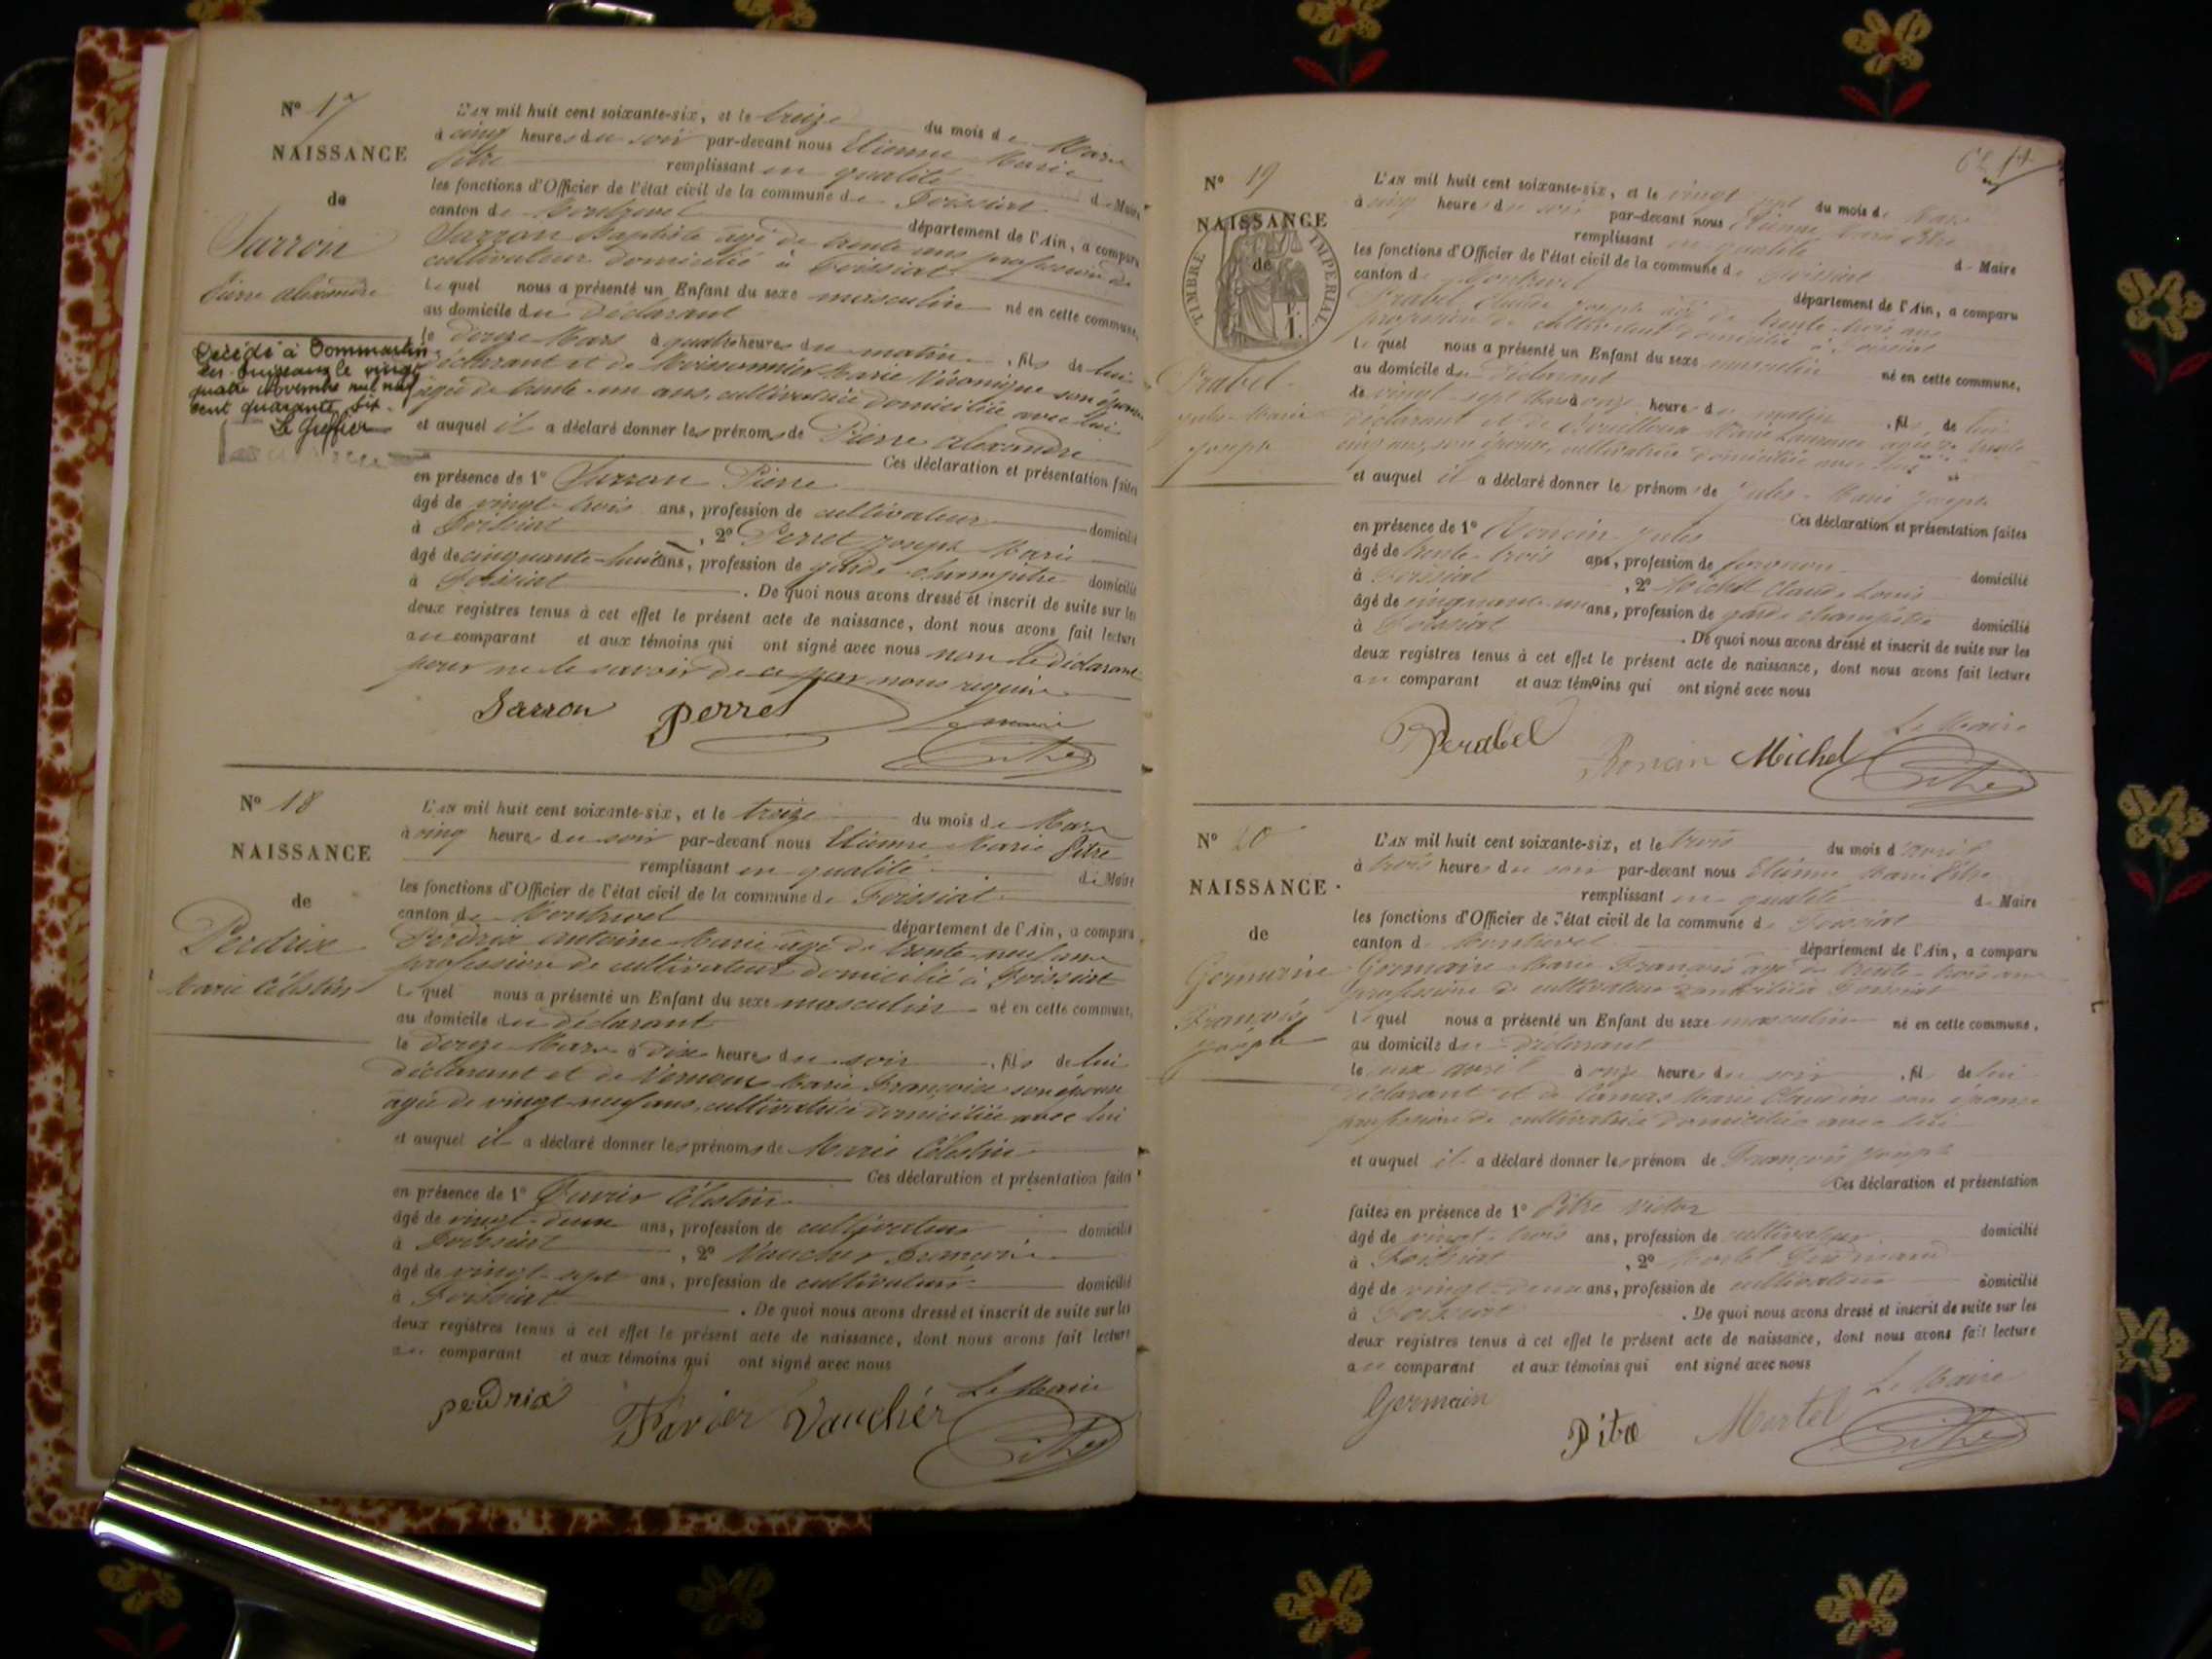 N° 17
NAISSANCE
de
Sarron
Pierre Alexandre
Décédé à Dommartin
les Cuiseaux le vingt
quatre Novembre mil neuf
cent quarante six.
Le Greffier
L'AN mil huit cent soixante-six, et le treize du mois de Mars
à cinq heures du soir par-devant nous Etienne Marie
Pitre remplissant en qualité de Maire
les fonctions d'Officier de l'état civil de la commune de Foissiat
canton de Montrevel département de l'Ain, a comparu
Sarron Baptiste âgé de trente ans profession de
cultivateur domicilié à Foissiat
Lequel nous a présenté un Enfant du sexe masculin né en cette commune,
au domicile du Déclarant
le douze Mars à quatre heures du matin, fils de lui
déclarant et de Moissonnier Marie Véronique son épouse
âgée de trente-un ans, cultivatrice domiciliée avec lui
et auquel il a déclaré donner les prénoms de Pierre Alexandre
Ces déclaration et présentation faites
en présence de 1° Sarron Pierre
âgé de vingt-trois ans, profession de cultivateur domicilié
à Foissiat, 2° Perret Joseph Marie
âgé de cinquante-huit ans, profession de garde-champêtre domicilié
à Foissiat. De quoi nous avons dressé et inscrit de suite sur les
deux registres tenus à cet effet le présent acte de naissance, dont nous avons fait lecture
au comparant et aux témoins qui ont signé avec nous non le Déclarant
pour ne le savoir de ce par nous requis
Sarron Perret Le Maire
Pitre
N° 18
NAISSANCE
de
Perdrix
Marie Célestin
L'AN mil huit cent soixante-six, et le treize du mois de Mars
à cinq heures du soir par-devant nous Etienne Marie Pitre
remplissant en qualité de Maire
les fonctions d'Officier de l'état civil de la commune de Foissiat
canton de Montrevel département de l'Ain, a comparu
Perdrix Antoine Marie âgé de trente-neuf ans
profession de cultivateur domicilié à Foissiat
Lequel nous a présenté un Enfant du sexe masculin né en cette commune,
au domicile du déclarant
le douze Mars à dix heures du soir, fils de lui
déclarant et de Marie Françoise son épouse
âgée de vingt-neuf ans, cultivatrice domiciliée avec lui
et auquel il a déclaré donner les prénoms de Marie Célestin
Ces déclaration et présentation faites
en présence de 1° Favier Célestin
âgé de vingt-deux ans, profession de cultivateur domicilié
à Foissiat, 2° Vaucher
âgé de vingt-sept ans, profession de cultivateur domicilié
à Foissiat. De quoi nous avons dressé et inscrit de suite sur les
deux registres tenus à cet effet le présent acte de naissance, dont nous avons fait lecture
au comparant et aux témoins qui ont signé avec nous
perdrix Favier Vauchér Le Maire
Pitre
N° 19
NAISSANCE
de
TIMBRE IMPERIAL
Prabel
Jules-Marie
Joseph
L'AN mil huit cent soixante-six, et le vingt sept du mois de Mars
à cinq heures du soir par-devant nous Etienne Marie Pitre
remplissant en qualité de Maire
les fonctions d'Officier de l'état civil de la commune de Foissiat
canton de Montrevel département de l'Ain, a comparu
Prabel Joseph âgé de trente-trois ans
profession de cultivateur domicilié à Foissiat
Lequel nous a présenté un Enfant du sexe masculin né en cette commune,
au domicile du Déclarant
le vingt-sept Mars à onze heures du matin, fils de lui
déclarant et de Marie Laurence âgée de trente
cinq ans, son épouse, cultivatrice domiciliée avec lui
et auquel il a déclaré donner les prénoms de Jules-Marie Joseph
Ces déclaration et présentation faites
en présence de 1° Jules
âgé de trente-trois ans, profession de domicilié
à Foissiat, 2° Michel Claude Louis
âgé de cinquante-un ans, profession de garde-champêtre domicilié
à Foissiat. De quoi nous avons dressé et inscrit de suite sur les
deux registres tenus à cet effet le présent acte de naissance, dont nous avons fait lecture
au comparant et aux témoins qui ont signé avec nous
Perabel Michel Le Maire
Pitre
N° 20
NAISSANCE
de
Germain
François
Joseph
L'AN mil huit cent soixante-six, et le trois du mois d'avril
à trois heures du soir par-devant nous Etienne Marie Pitre
remplissant en qualité de Maire
les fonctions d'Officier de l'état civil de la commune de Foissiat
canton de Montrevel département de l'Ain, a comparu
Germain Marie François âgé de trente-trois ans
profession de cultivateur domicilié à Foissiat
Lequel nous a présenté un Enfant du sexe masculin né en cette commune,
au domicile du Déclarant
le avril à onze heures du soir, fils de lui
déclarant et de Marie Claudine son épouse
profession de cultivatrice domiciliée avec lui
et auquel il a déclaré donner les prénoms de François Joseph
Ces déclaration et présentation
faites en présence de 1° Pitre Victor
âgé de vingt-trois ans, profession de cultivateur domicilié
à Foissiat, 2° Mortel
âgé de vingt-deux ans, profession de cultivateur domicilié
à Foissiat. De quoi nous avons dressé et inscrit de suite sur les
deux registres tenus à cet effet le présent acte de naissance, dont nous avons fait lecture
au comparant et aux témoins qui ont signé avec nous
Germain Pitre Mortel Le Maire
Pitre